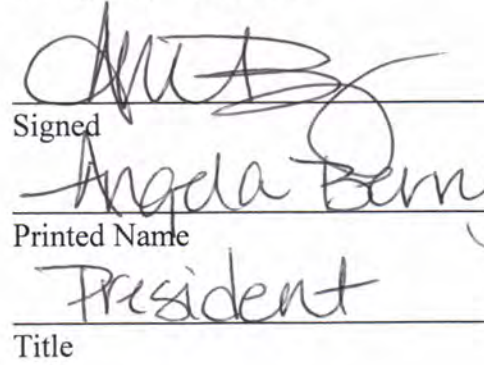 Signed
Angela
Printed Name
President
Title